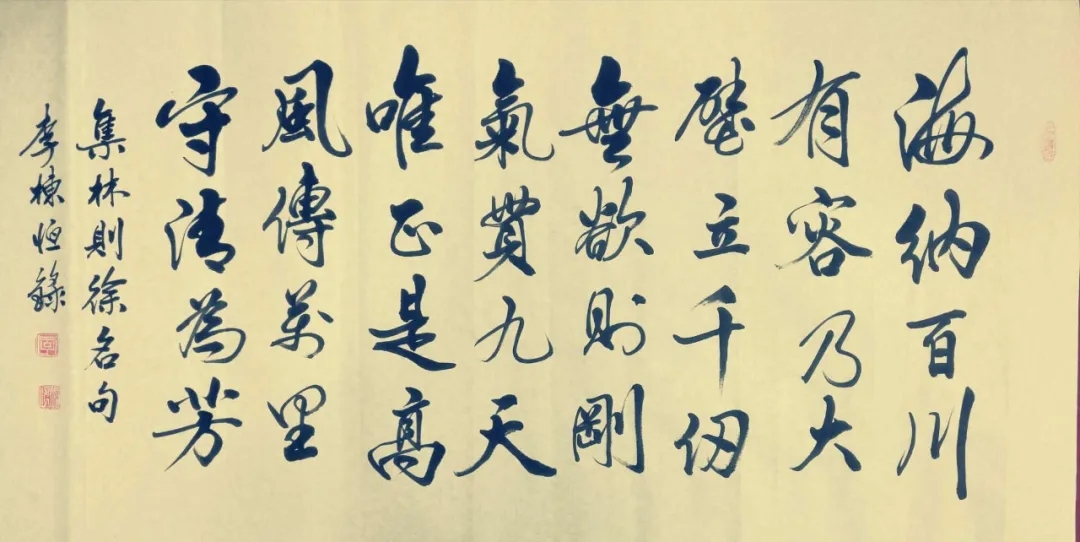 海納百川
有容乃大
壁立千仞
無欲則剛
氣貫九天
唯正是高
風傳萬里
守清為芳
集林則徐名句
李棟恒錄